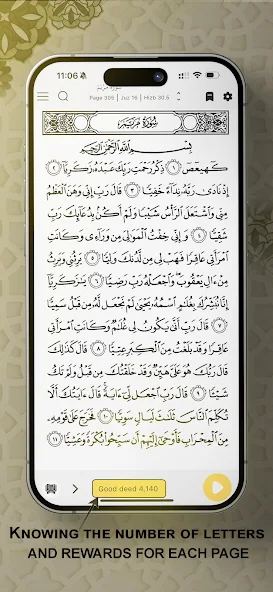 11:06
سورة مريم
Page 305 | Juz 16 | Hizb 30.5
سُورَةُ مَرْيَمَ
بِسْمِ اللَّهِ الرَّحْمَٰنِ الرَّحِيمِ
كٓهيعٓصٓ ١ ذِكْرُ رَحْمَتِ رَبِّكَ عَبْدَهُ زَكَرِيَّا ٢
إِذْ نَادَىٰ رَبَّهُ نِدَآءً خَفِيًّا ٣ قَالَ رَبِّ إِنِّي وَهَنَ الْعَظْمُ
مِنِّي وَاشْتَعَلَ الرَّأْسُ شَيْبًا وَلَمْ أَكُنۢ بِدُعَآئِكَ رَبِّ
شَقِيًّا ٤ وَإِنِّي خِفْتُ الْمَوَٰلِيَ مِن وَرَآءِي وَكَانَتِ
امْرَأَتِي عَاقِرًا فَهَبْ لِي مِن لَّدُنكَ وَلِيًّا ٥ يَرِثُنِي وَيَرِثُ
مِنْ ءَالِ يَعْقُوبَ وَاجْعَلْهُ رَبِّ رَضِيًّا ٦ يَٰزَكَرِيَّآ
إِنَّا نُبَشِّرُكَ بِغُلَٰمٍ اسْمُهُ يَحْيَىٰ لَمْ نَجْعَل لَّهُ مِن قَبْلُ سَمِيًّا
٧ قَالَ رَبِّ أَنَّىٰ يَكُونُ لِي غُلَٰمٌ وَكَانَتِ امْرَأَتِي
عَاقِرًا وَقَدْ بَلَغْتُ مِنَ الْكِبَرِ عِتِيًّا ٨ قَالَ كَذَٰلِكَ
قَالَ رَبُّكَ هُوَ عَلَيَّ هَيِّنٌ وَقَدْ خَلَقْتُكَ مِن قَبْلُ وَلَمْ تَكُ
شَيْـًٔا ٩ قَالَ رَبِّ اجْعَل لِّي ءَايَةً قَالَ ءَايَتُكَ أَلَّا
تُكَلِّمَ النَّاسَ ثَلَٰثَ لَيَالٍ سَوِيًّا ١٠ فَخَرَجَ عَلَىٰ قَوْمِهِ
مِنَ الْمِحْرَابِ فَأَوْحَىٰٓ إِلَيْهِمْ أَن سَبِّحُوا بُكْرَةً وَعَشِيًّا ١١
Good deed 4,140
KNOWING THE NUMBER OF LETTERS
AND REWARDS FOR EACH PAGE